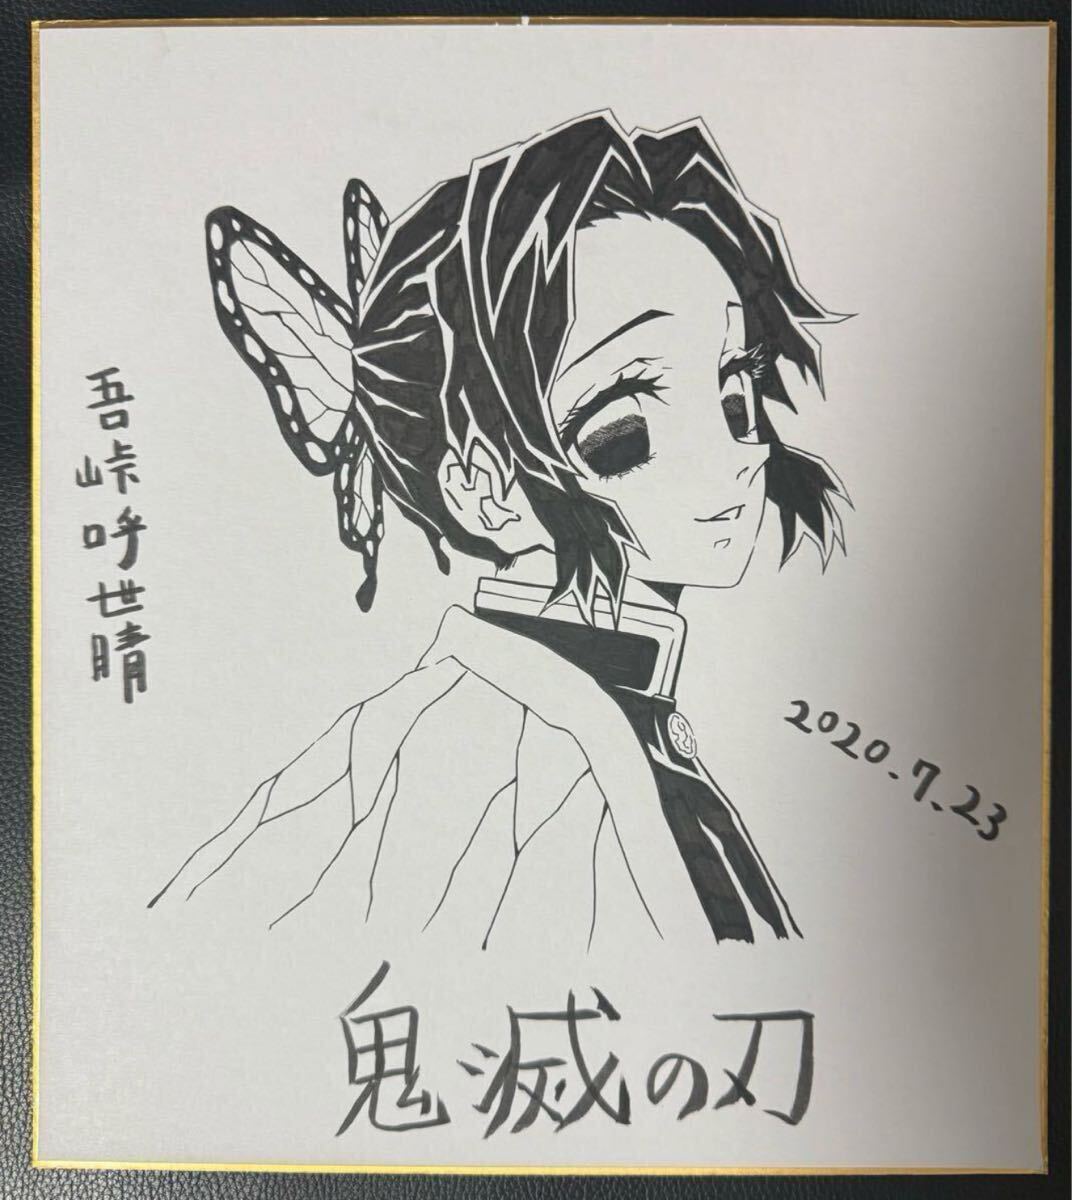 吾峠呼世晴
2020.7.23
鬼滅の刃